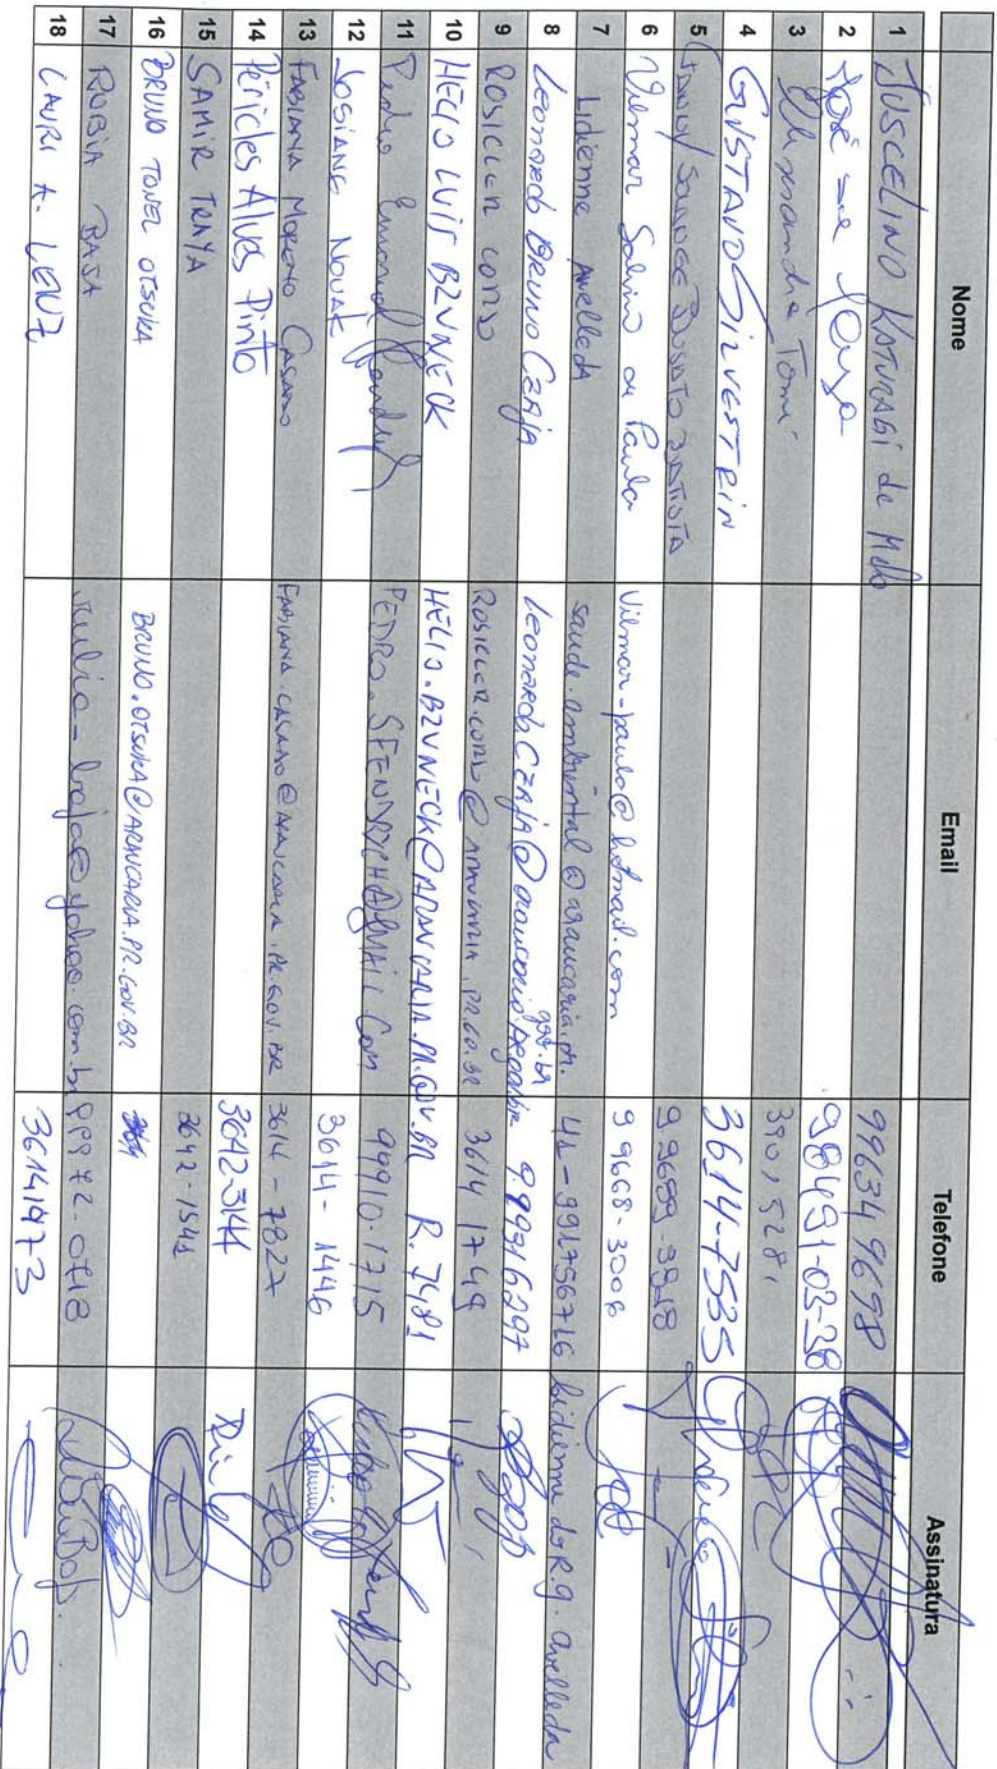 Nome Email Telefone Assinatura
1 JUSCELINO KATURAGI de Melo 99634 9698
2 José 98491-03-38
3 Tomé 3901 5281
4 GUSTAVO SILVESTRIN 3614-7535
5 SOLANGE BATISTA 9 9689-3918
6 Vilmar Salvino de Paula Vilmar-paula@hotmail.com 9 9668-3006
7 Lidienne Avelleda saude.ambiental@araucaria.pr. gov.br 41-991756716 Lidienne do R.G. Avelleda
8 Leonardo BRUNO CZAJA Leonardo CZAJA@araucaria.pr.gov.br 9.99916297
9 ROSICLER CORSO ROSICLER.CORSO@ARAUCARIA.PR.GO.BR 3614 1749
10 HELIO LUIS BZUNECK HELIO.BZUNECK@ARAUCARIA.PR.GOV.BR R. 7481
11 Pedro PEDRO.SFENDRYCH@GMAIL.COM 99910-1715
12 JOSIANE NOVAK 3614-1446
13 FABIANA MORENO CASADO FABIANA.CASADO@ARAUCARIA.PR.GOV.BR 3614-7827
14 Péricles Alves Pinto 3642-3144
15 SAMIR TRAYA 3642-1541
16 BRUNO TONEL OTSUKA BRUNO.OTSUKA@ARAUCARIA.PR.GOV.BR
17 RUBIA BAJA @yahoo.com.br 99972-0718
18 LAURI A. LENZ 36141473